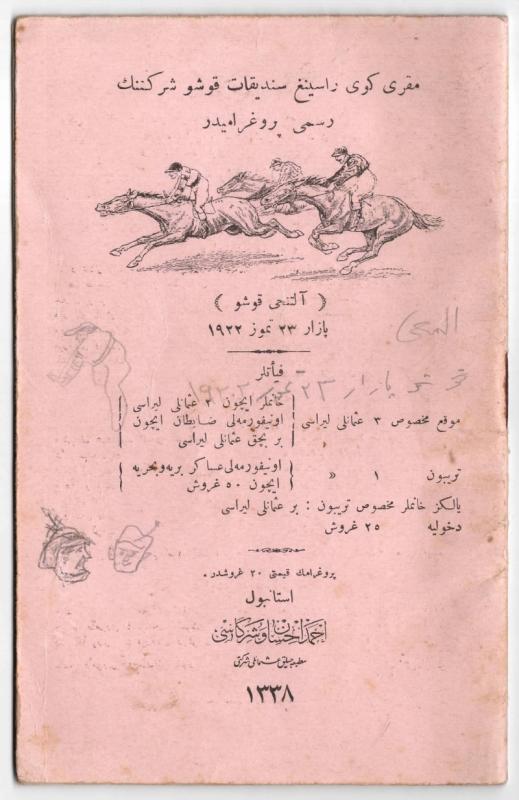 مقری کوی راسینغ سندیقات قوشو شرکتنك
رسمی پروغرامیدر
﴿ آلتنجی قوشو ﴾
بازار ٢٣ تموز ١٩٢٢
فیأتلر
موقع مخصوص ٣ عثمانلی لیراسی
خانملر ایچون ٢ عثمانلی لیراسی
اونیفورمه‌لی ضابطان ایچون
بر بچق عثمانلی لیراسی
تریبون ١ »
اونیفورمه‌لی عساکر بریه و بحریه
ایچون ٥٠ غروش
یالکز خانملر مخصوص تریبون : بر عثمانلی لیراسی
دخولیه ٢٥ غروش
پروغرامك قیمتی ٢٠ غروشدر .
استانبول
احمد احسان و شرکاسی
مطبعه‌جیلق عثمانلی شرکتی
١٣٣٨
بازار ٢٣ تموز ١٩٢٢